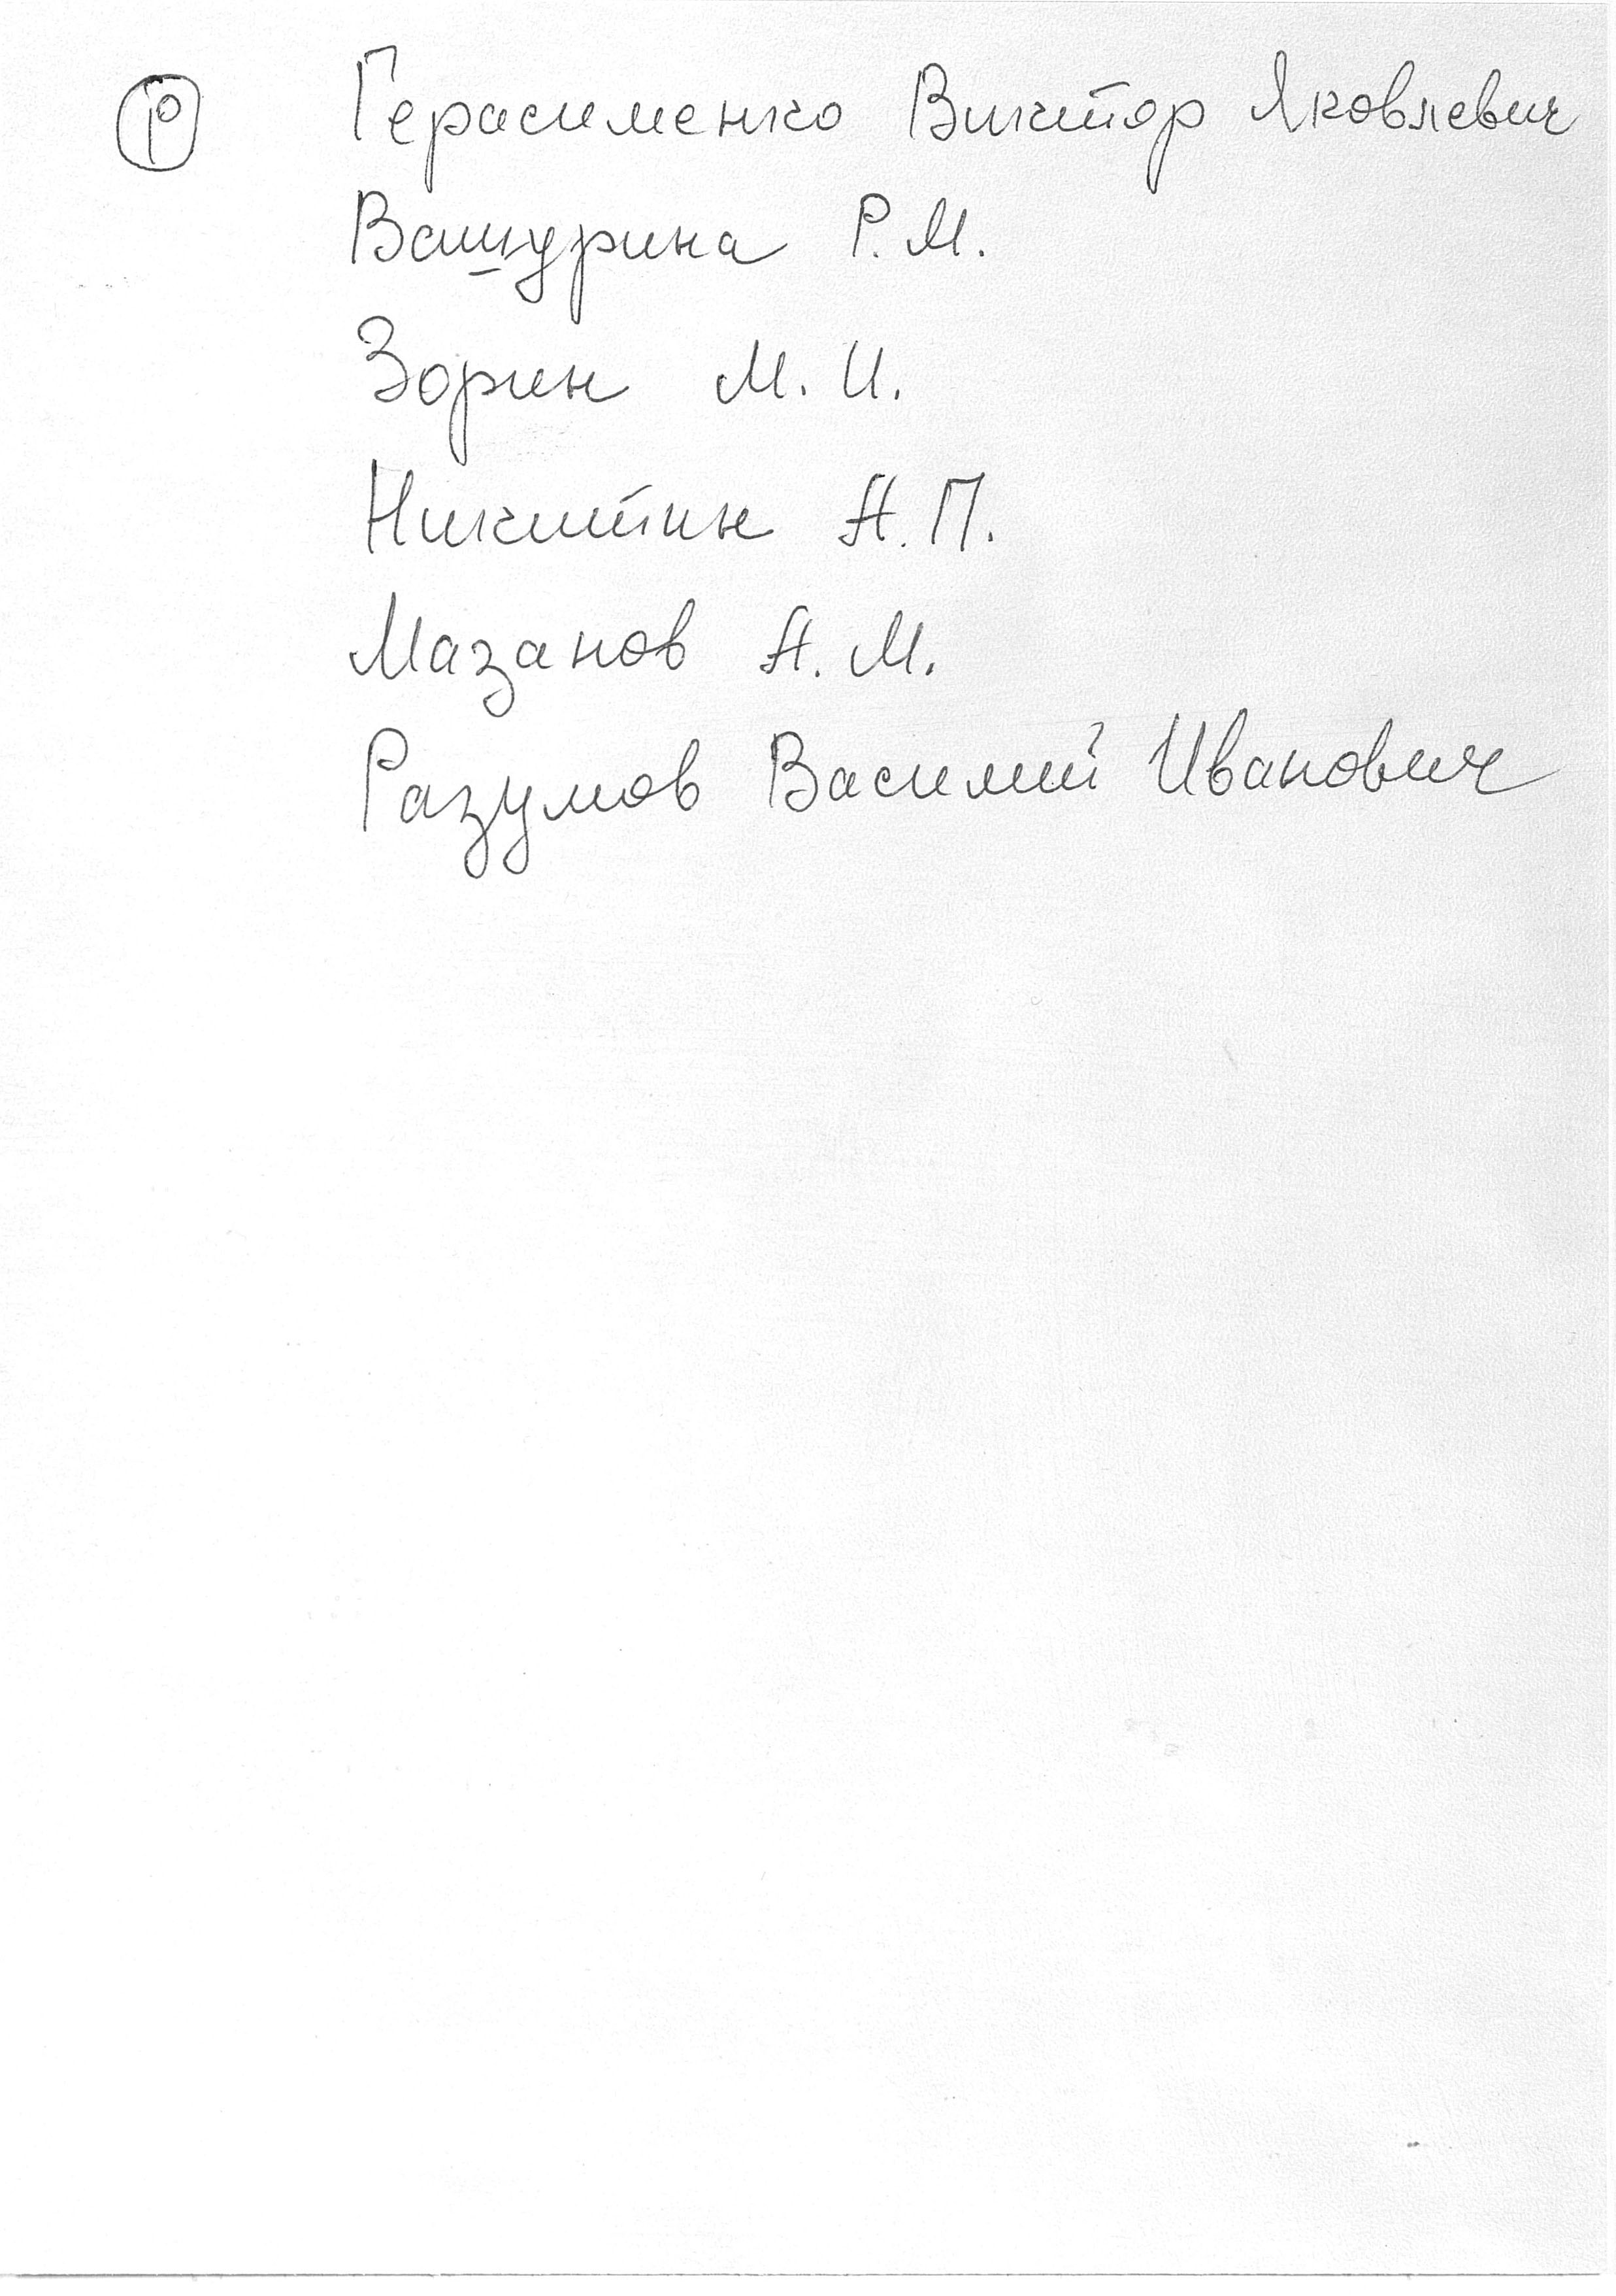 Р Герасименко Виктор Яковлевич
Вашурина Р. М.
Зорин М. И.
Никитин А. П.
Мазанов А. М.
Разумов Василий Иванович